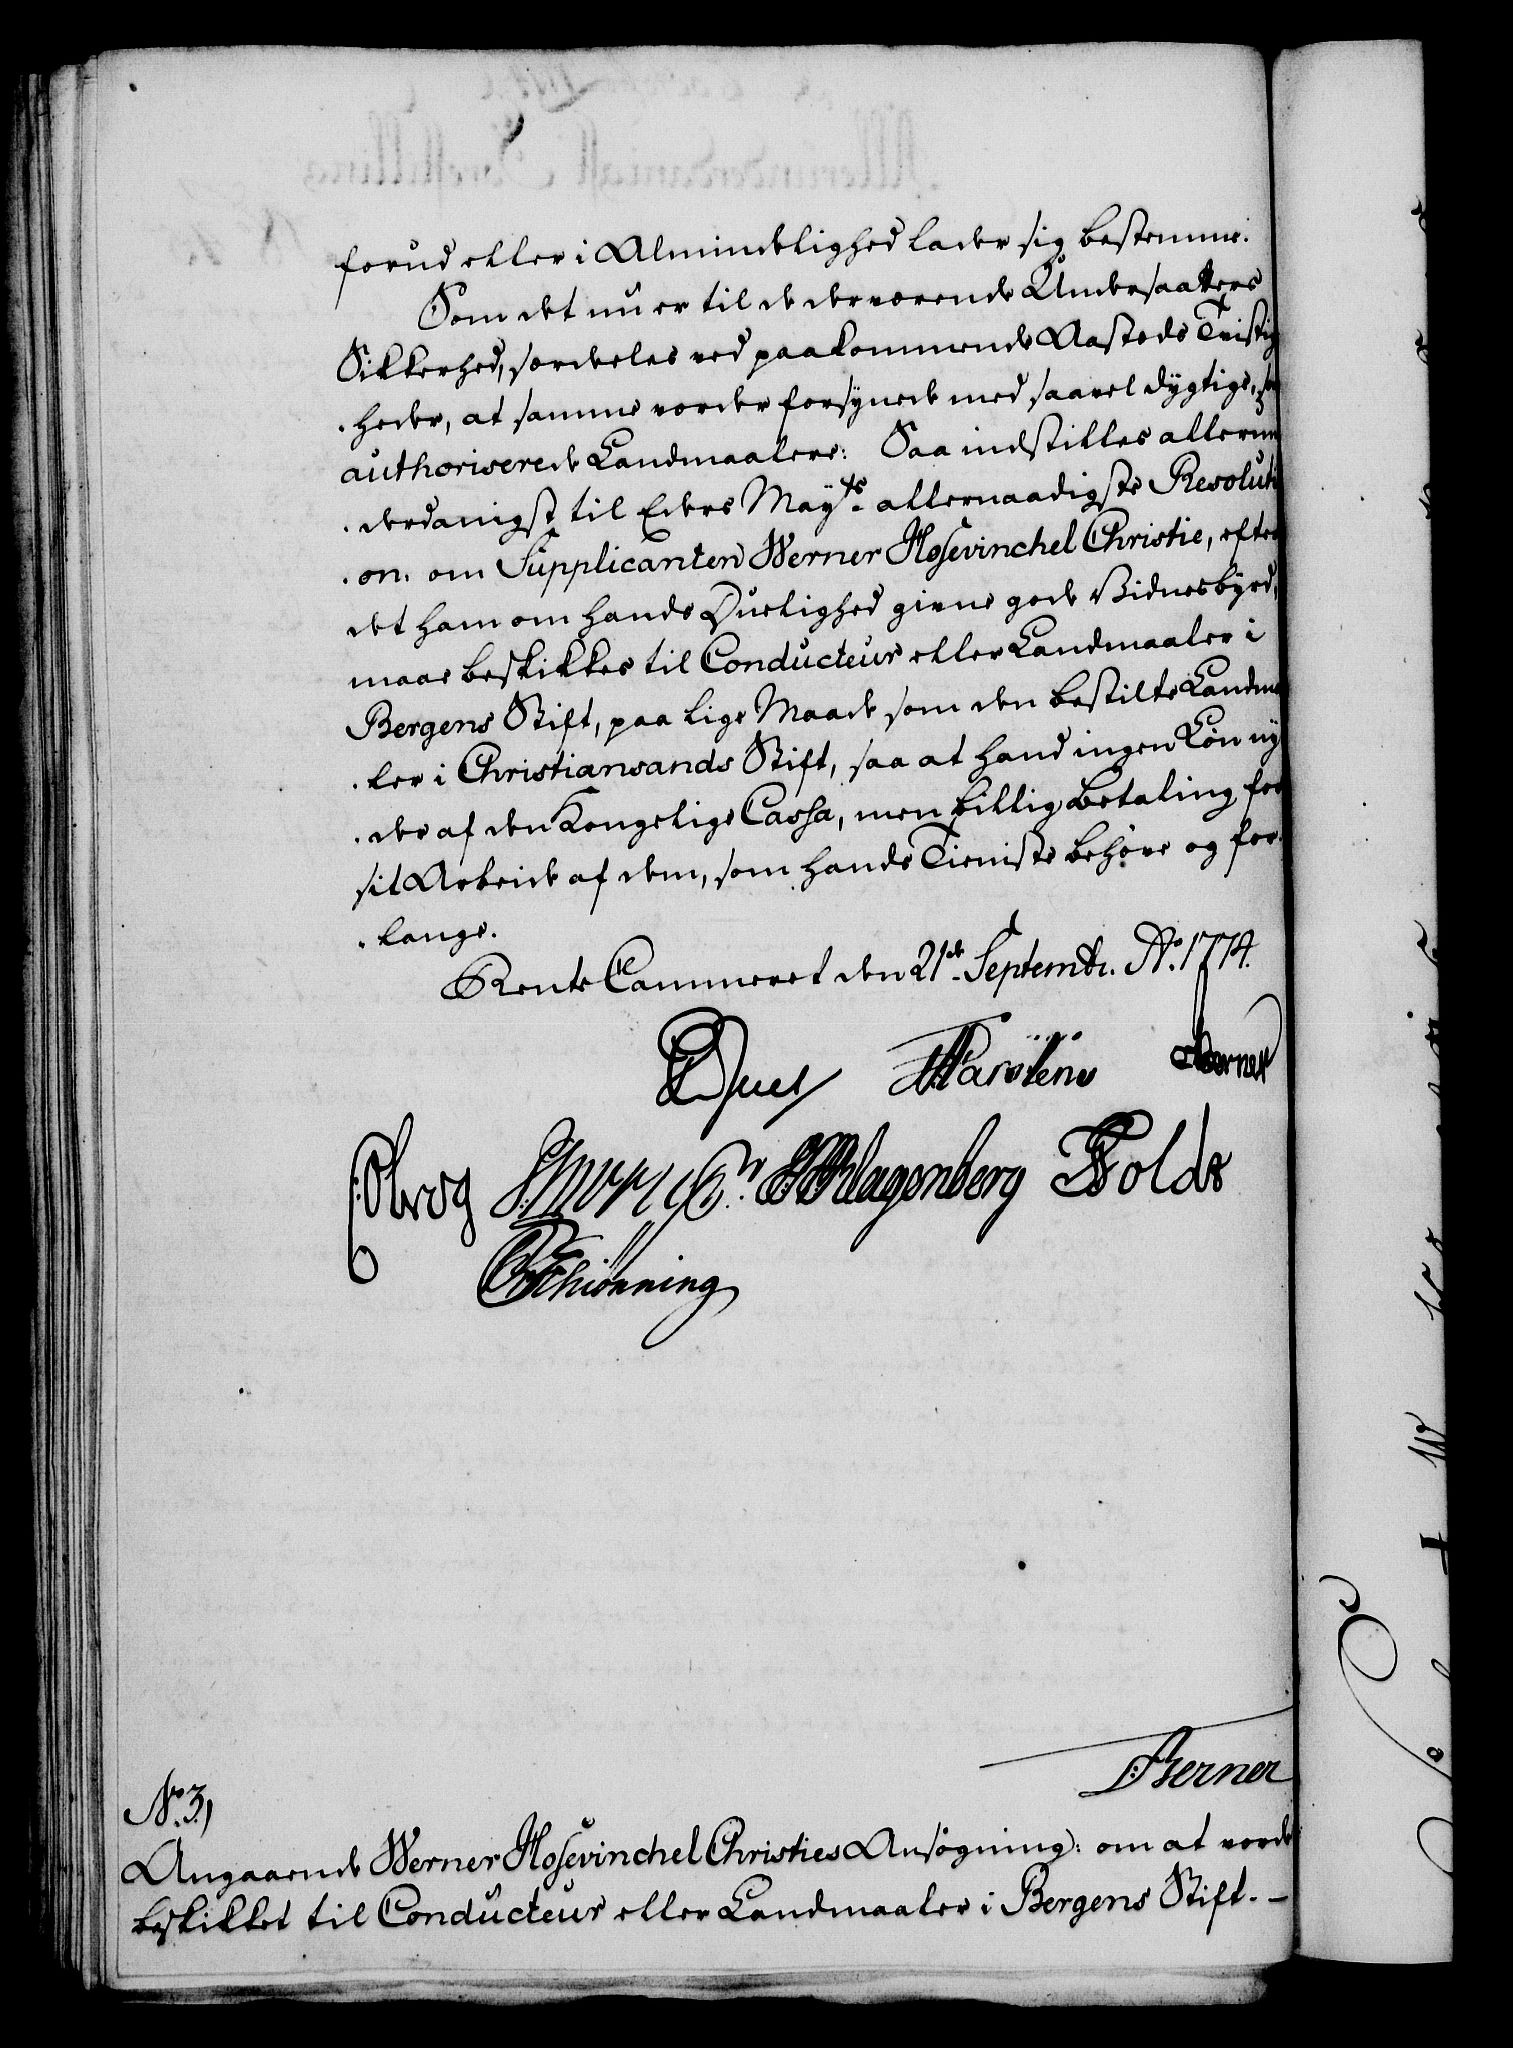 forud eller i Almindelighed lader sig bestemme.
Som det nu er til de derværende Undersaatters
Sikkerhed, særdeles ved paakommende Aasteds Tvistig
heder, at samme vorder forsynede med saavel dygtige, som
authoriserede Landmaalere: Saa indstilles allerun
derdanigst til Eders Mayts allernaadigste Resoluti
on: om Supplicanten Werner Hosevinchel Christie, efter
det ham om hands Duelighed givne gode Vidnesbyrd,
maae beskikkes til Conducteur eller Landmaaler i
Bergens Stift, paa lige Maade som den bestilte Landmaa
ler i Christiansands Stift, saa at hand ingen Løn ny
der af den Kongelige Cassa, men billig Betaling for
sit Arbeide af dem, som hands Tieniste behøve og for
lange.
Rente Cammeret den 21de Septembr. Ao. 1774.
Juel Karstens Berner
Obrog Klagenberg Holdt
Schiønning
Berner
No. 3,
Angaaende Werner Hosevinchel Christies Ansøgning: om at vorde
beskikket til Conducteur eller Landmaaler i Bergens Stift. –